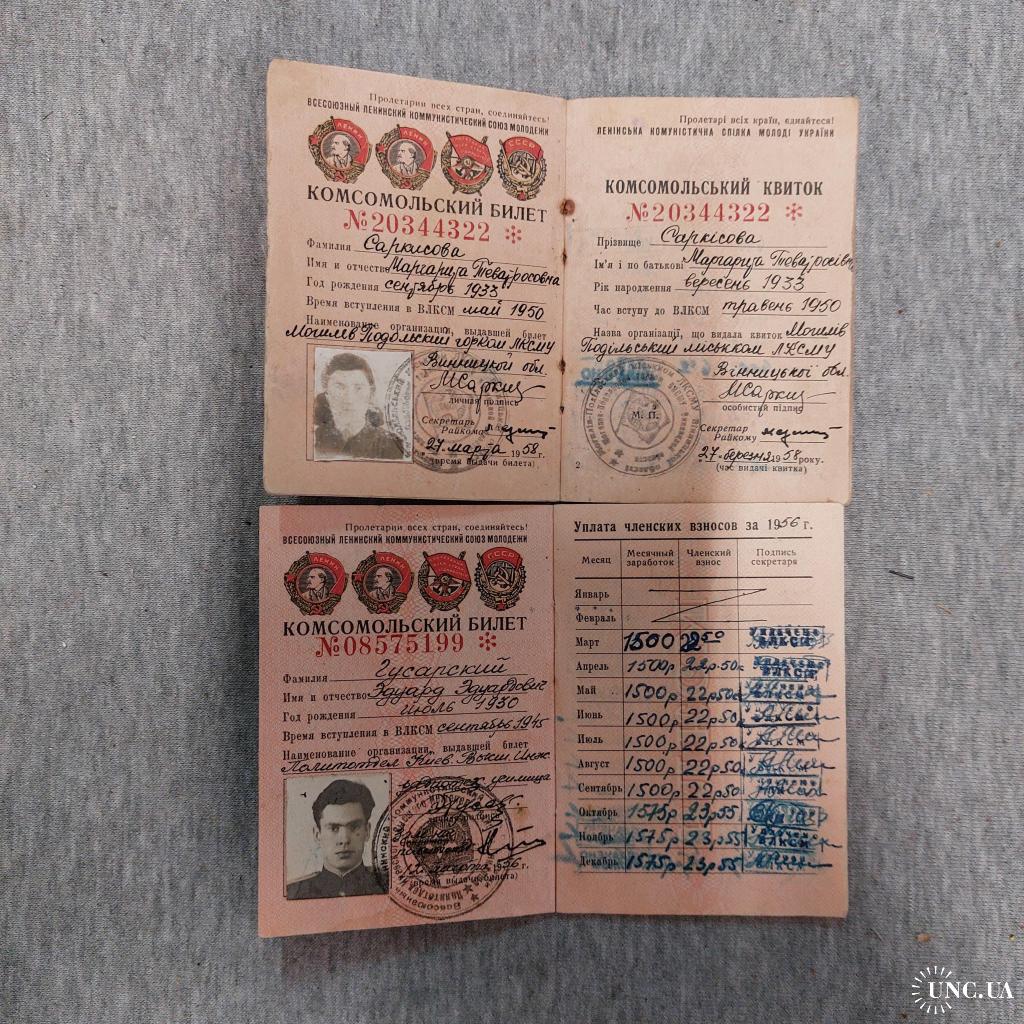 Пролетарии всех стран, соединяйтесь!
ВСЕСОЮЗНЫЙ ЛЕНИНСКИЙ КОММУНИСТИЧЕСКИЙ СОЮЗ МОЛОДЕЖИ
КОМСОМОЛЬСКИЙ БИЛЕТ
№20344322 *
Фамилия Саркисова
Имя и отчество Маргарита Тевадросовна
Год рождения сентябрь 1933
Время вступления в ВЛКСМ май 1950
Наименование организации, выдавшей билет
Могилев Подольский горком ЛКСМУ
Винницкой обл.
МСаркис
личная подпись
Секретарь
Райкома
27 марта 1958 г.
(время выдачи билета)
Пролетарі всіх країн, єднайтеся!
ЛЕНІНСЬКА КОМУНІСТИЧНА СПІЛКА МОЛОДІ УКРАЇНИ
КОМСОМОЛЬСЬКИЙ КВИТОК
№20344322 *
Прізвище Саркісова
Ім'я і по батькові Маргарита Тевадросівна
Рік народження вересень 1933
Час вступу до ВЛКСМ травень 1950
Назва організації, що видала квиток Могилів
Подільський міськком ЛКСМУ
Вінницької обл.
МСаркис
особистий підпис
М. П.
Секретар
Райкому
27 березня 1958 року.
(час видачі квитка)
2
Пролетарии всех стран, соединяйтесь!
ВСЕСОЮЗНЫЙ ЛЕНИНСКИЙ КОММУНИСТИЧЕСКИЙ СОЮЗ МОЛОДЕЖИ
КОМСОМОЛЬСКИЙ БИЛЕТ
№08575199 *
Фамилия Гусарский
Имя и отчество Эдуард Эдуардович
Год рождения июль 1930
Время вступления в ВЛКСМ сентябрь 1945
Наименование организации, выдавшей билет
Политотдел Киев. Воен. Инж.
училища
1956 г.
(время выдачи билета)
Уплата членских взносов за 1956 г.
Месяц Месячный заработок Членский взнос Подпись секретаря
Январь
Февраль
Март 1500 22 50 Уплачено ВЛКСМ
Апрель 1500р 22р-50к Уплачено ВЛКСМ
Май 1500р 22р50к ВЛКСМ
Июнь 1500р 22р50к
Июль 1500р 22р50к
Август 1500р 22р50к
Сентябрь 1500р 22р50
Октябрь 1575р 23р55
Ноябрь 1575р 23р55 ВЛКСМ
Декабрь 1575р 23р55
UNC.UA